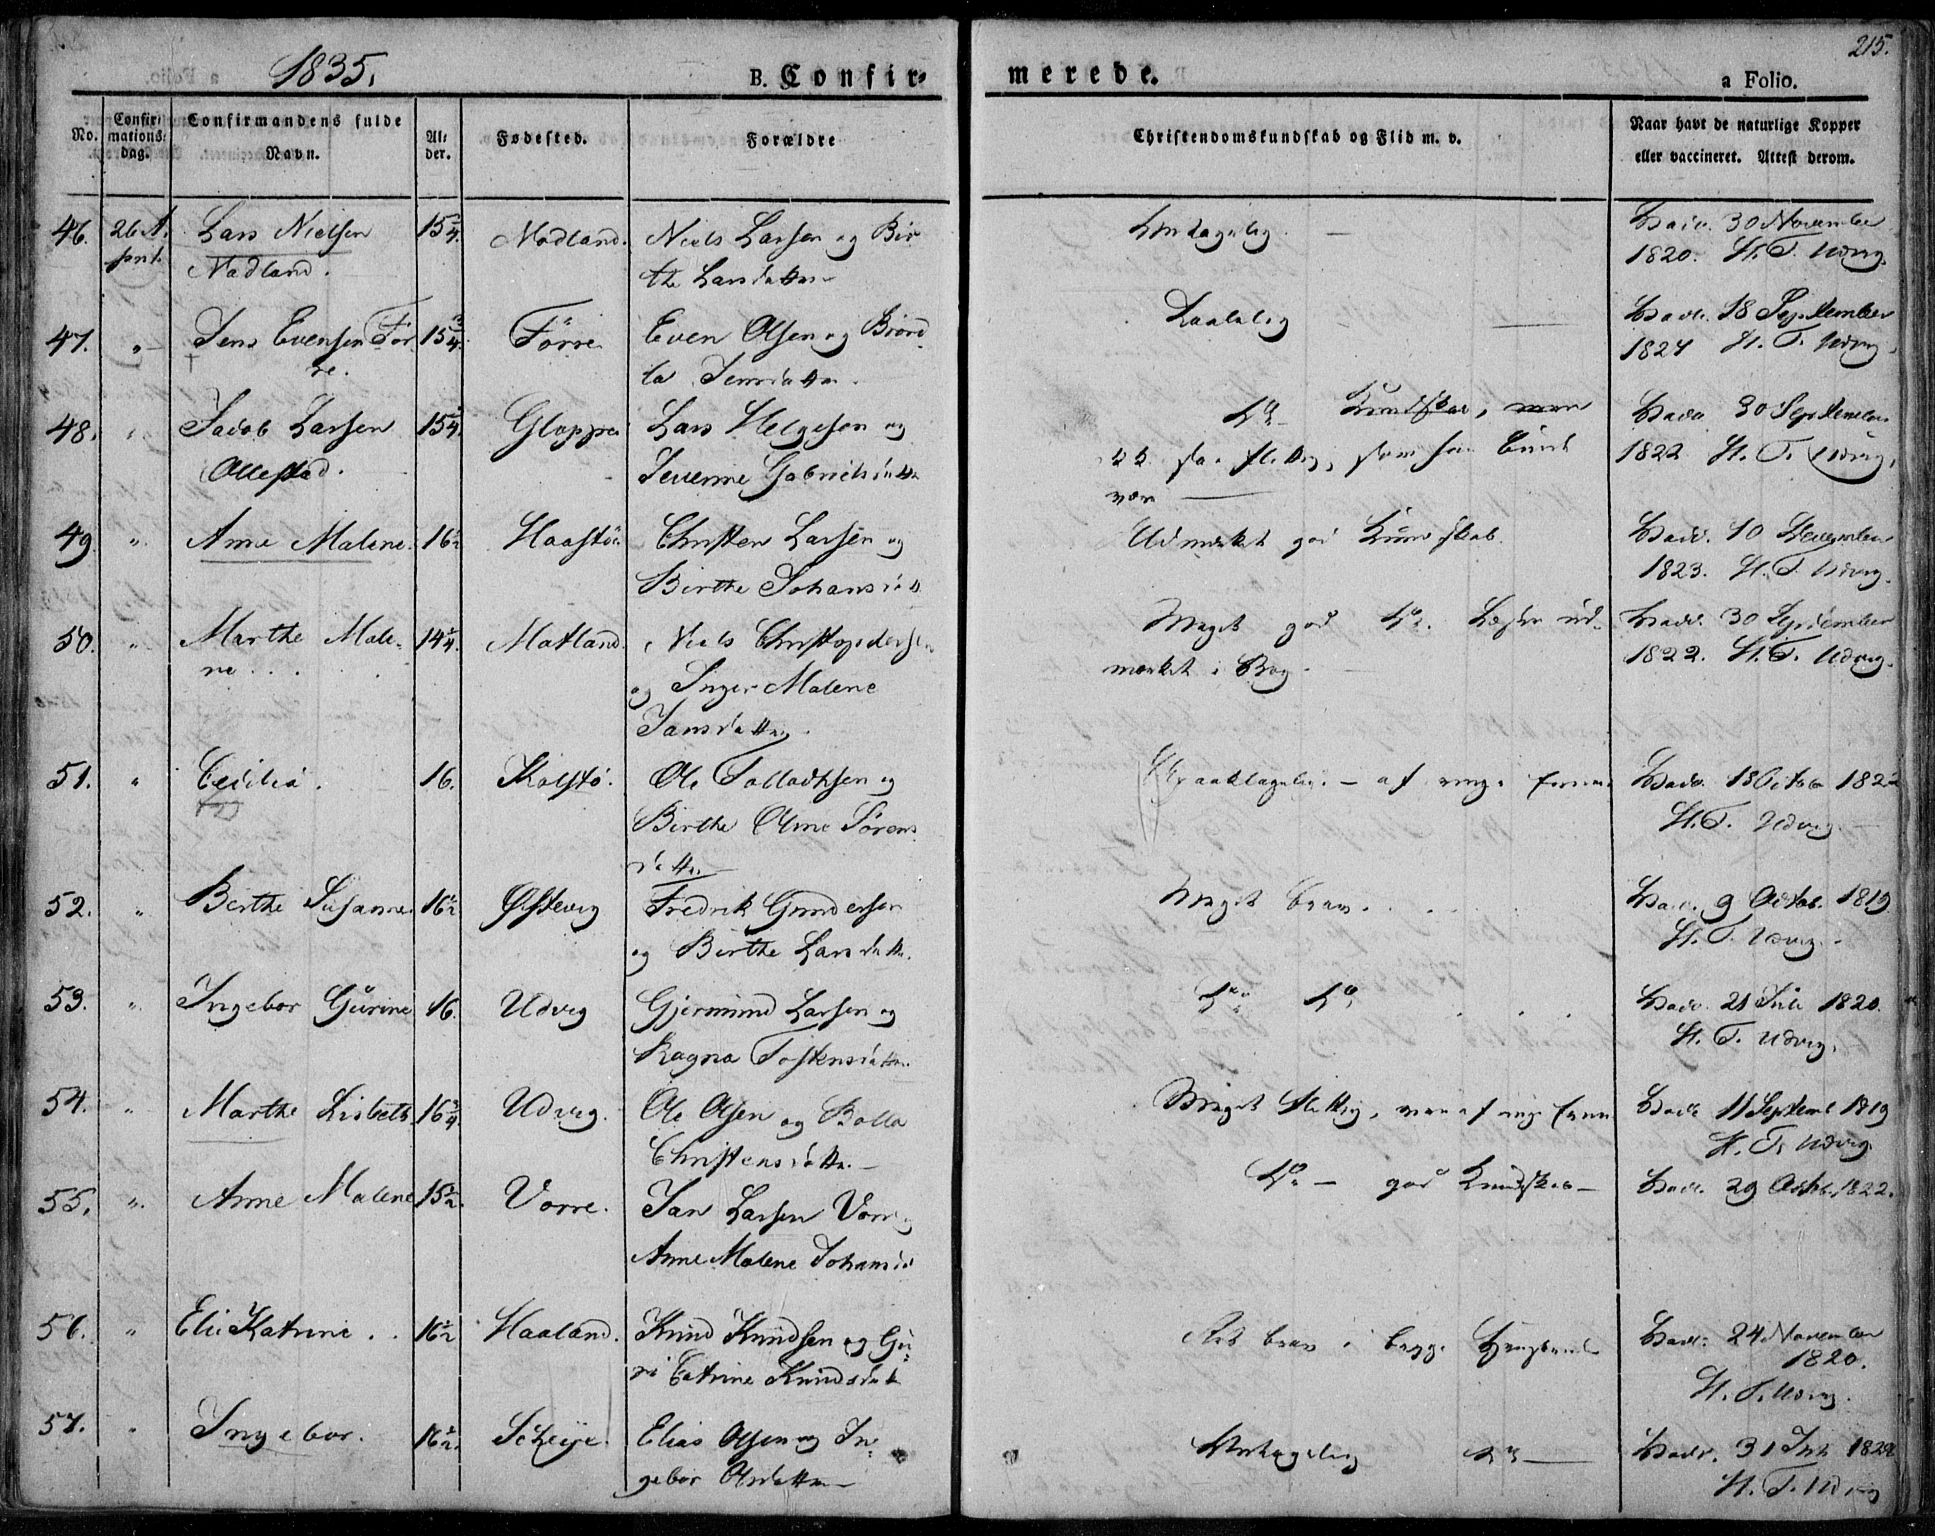 1835.
B. Confir-
merede.
215.
a Folio.
No.
Confir-
mations-
dag.
Confirmandens fulde
Navn.
Al-
der.
Fødested.
Forældre
Christendomskundskab og Flid m. v.
Naar havt de naturlige Kopper
eller vaccineret. Attest derom.
46. 26 Lars Nielsen 15 Madland. Niels Larsen og Bir
Madland. the Larsdatter
Antagelig
30 November
1820. H. T. Udvig.
47. " Jens Evensen För 15¾ Förre Even Olsen og
re. la Jensdatter.
Taalelig
18 September
1824 H. T. Udvig.
48. " Jacob Larsen 15¼ Gloppe Lars Helgesen og
Ollestad. Severine Gabrielsdatter
Do Kundskab, men
30 September
1822 H. T. Udvig.
49 " Anne Malene. 16½ Haastö Christen Larsen og
Birthe Johansdatt
Udmærket god Kundskab.
10 December
1823. H. T. Udvig.
50. " Marthe Male- 14¼ Matland. Niels Christophersen
ne . . . og Inger Malene
Jansdatter.
Meget god Do. Læser ud-
mærket i Bog.
30 September
1822. H. T. Udvig.
51. " Cecilia. 16. Kolstö. Ole Talladhsen og
Birthe Oline Sörens
datter.
af ringe
18 Octobr 182
H. T. Udvig.
52. " Berthe Susanne 16½ Østevig Fredrik Gundersen
og Birthe Larsdatter.
Meget brav.
9 Octob. 1819
H. T. Udvig.
53. " Ingebor Gurine 16. Udvig Gjermund Larsen og
Ragna Tostensdatter.
Do Do
21 Juli 1820.
H. T. Udvig.
54. " Marthe Lisbeth 16¾ Udvig. Ole Olsen og Balla
Christensdatter.
Meget flittig, men af ringe
11 Septemb 1819
H. T. Udvig
55. " Anne Malene 15½ Vorre. Jan Larsen Vorre
Anne Malene Johansd
Do - god Kundskab -
29 Octob. 1822.
56. " Elie Katrine . . 16½ Haaland. Knud Knudsen og Gu-
ri Catrine Knudsdat
brav i begge
24 November
1820.
H. T. Udvig.
57. " Ingebor. 16½. Elias Olsen og In-
gebor Olsdatter
Antagelig Do
31
H. T. Udvig